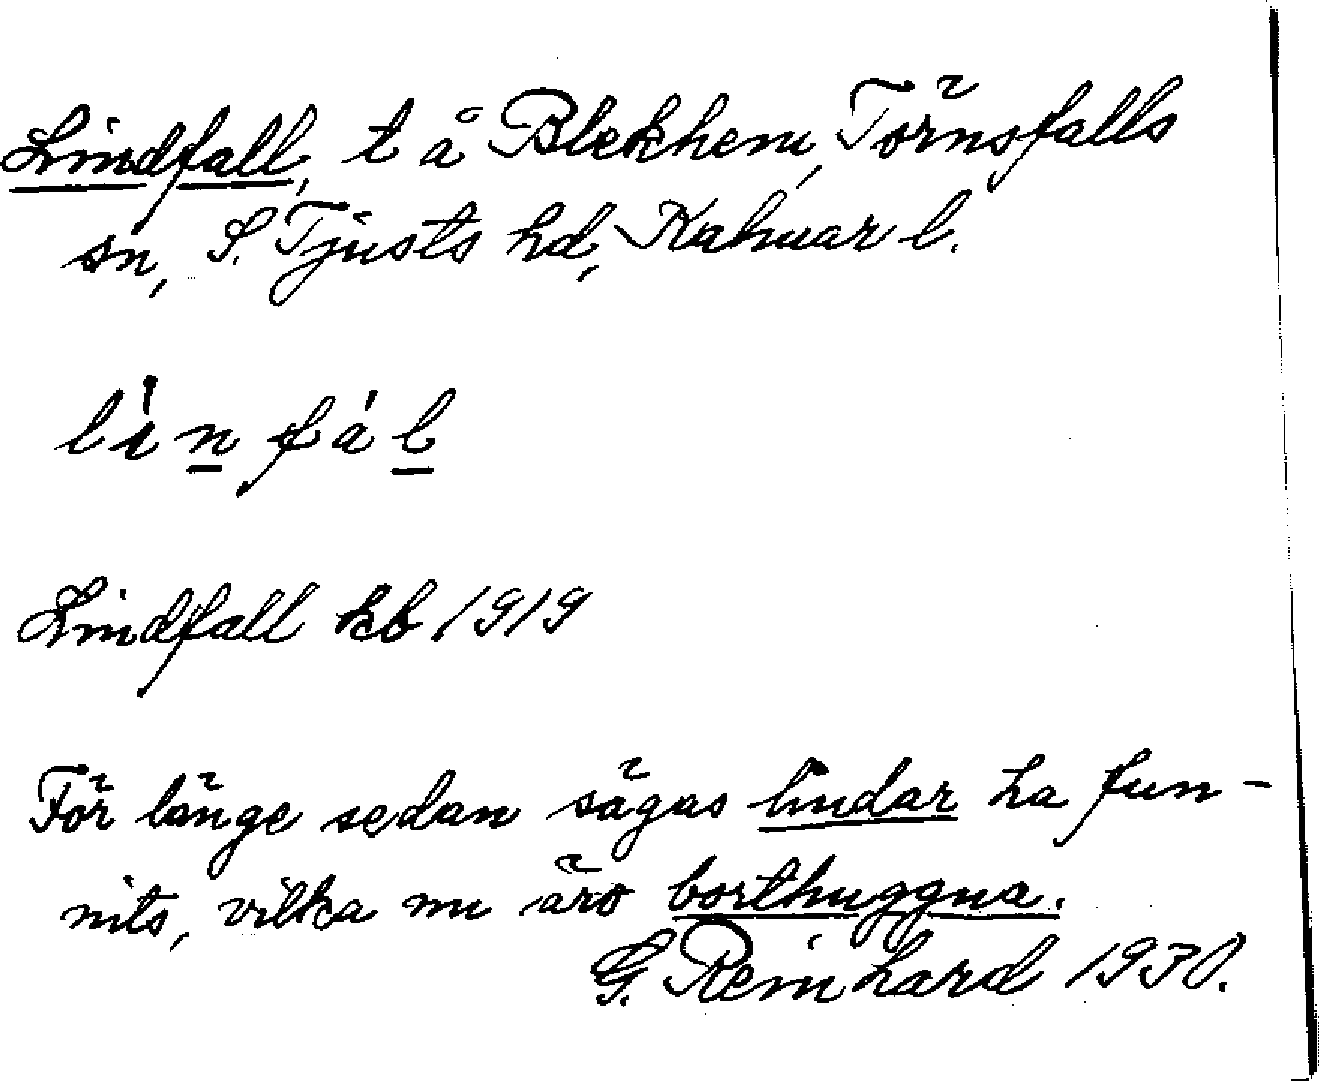 Lindfall, t å Blekhem, Törnsfalls
sn, S. Tjusts hd, Kalmar l.
lìnfál
Lindfall kb 1919
För länge sedan sägas lindar ha fun-
nits, vilka nu äro borthuggna.
G. Reinhard 1930.